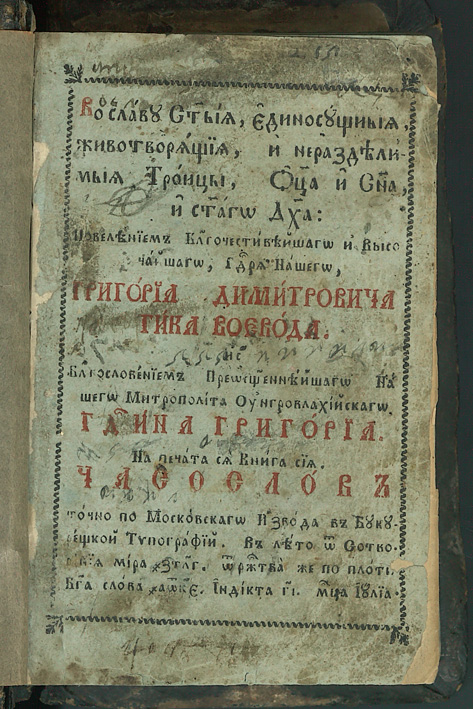 Во сла́ву Ст҃ы́ѧ, є҆диносꙋ́щныѧ,
животворѧ́щїѧ, и҆ нераздѣли́-
мыѧ Тро́ицы, Ѻ҆ц҃а̀ и҆ Сн҃а,
и҆ ст҃а́гѡ Дх҃а:
Повелѣ́нїемъ Бл҃гочести́вѣйшагѡ и҆ Высо
ча́йшагѡ, Гдⷭ҇рѧ На́шегѡ,
ГРИГО́РЇА ДИМИ́ТРОВИЧА
ГИКА ВОЕВО́ДА.
Бл҃гослове́нїемъ Прео҆сщ҃е́ннѣйшагѡ На́
шегѡ Митрополі́та Оу҆нгровлахі́йскагѡ,
Г҃ДИ́НА ГРИГО́РЇА.
На печа́та сѧ̀ Кни́га сїѧ̀.
ЧАСОСЛО́ВЪ
то́чно по Моско́вскагѡ И҆зво́да въ Бꙋкꙋ-
ре́шкой Тѷпогра́фїй. Въ лѣ́то ѿ Сотво-
ре́нїѧ мі́ра ꙗ҂зтл҃г. ѿ ржⷭ҇тва̀ же по пло́ти.
Бг҃а сло́ва ҂аѡк҃є. І҆ндїкта г҃і. мцⷭ҇а І҆ꙋ́лїа.